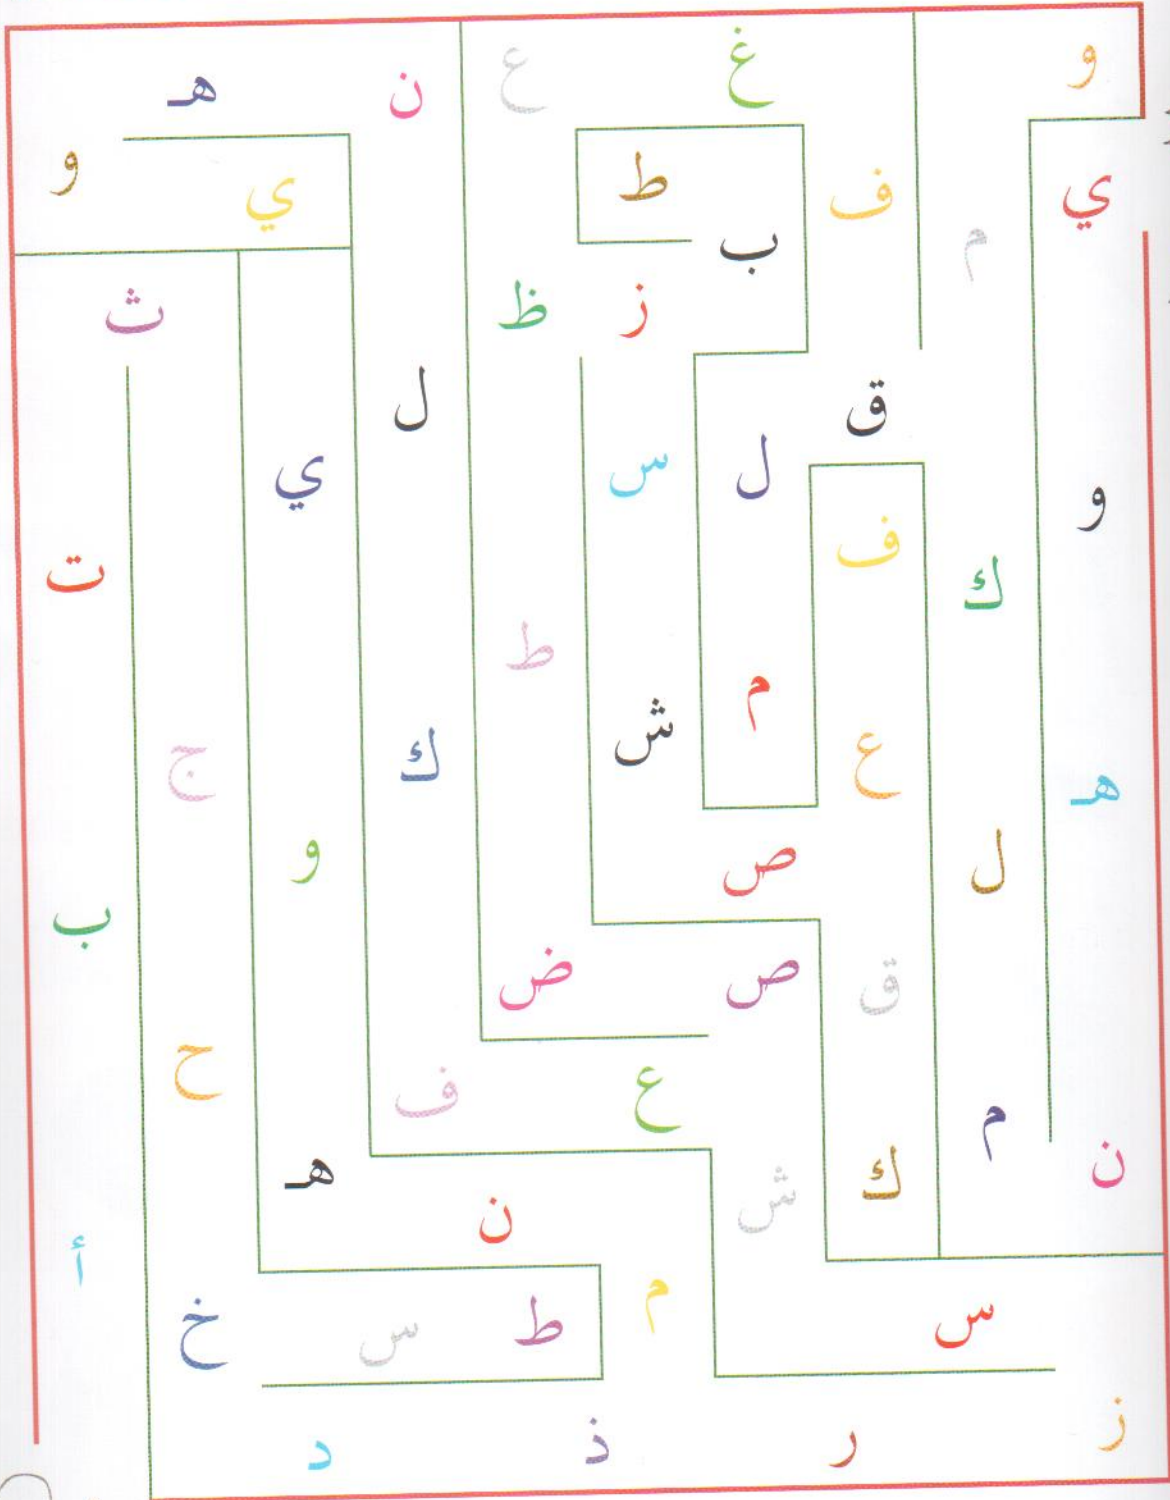 و غ ع ن هـ
ي ف ط ي و
م ب
ز ظ ث
ق ل
و ل س ي
ك ف ت
م ط
هـ ع ش ك ج
ل ص و
ق ص ض ب
م ع ف ح
ن ك ش ن هـ
س م ط س خ أ
ز ر ذ د